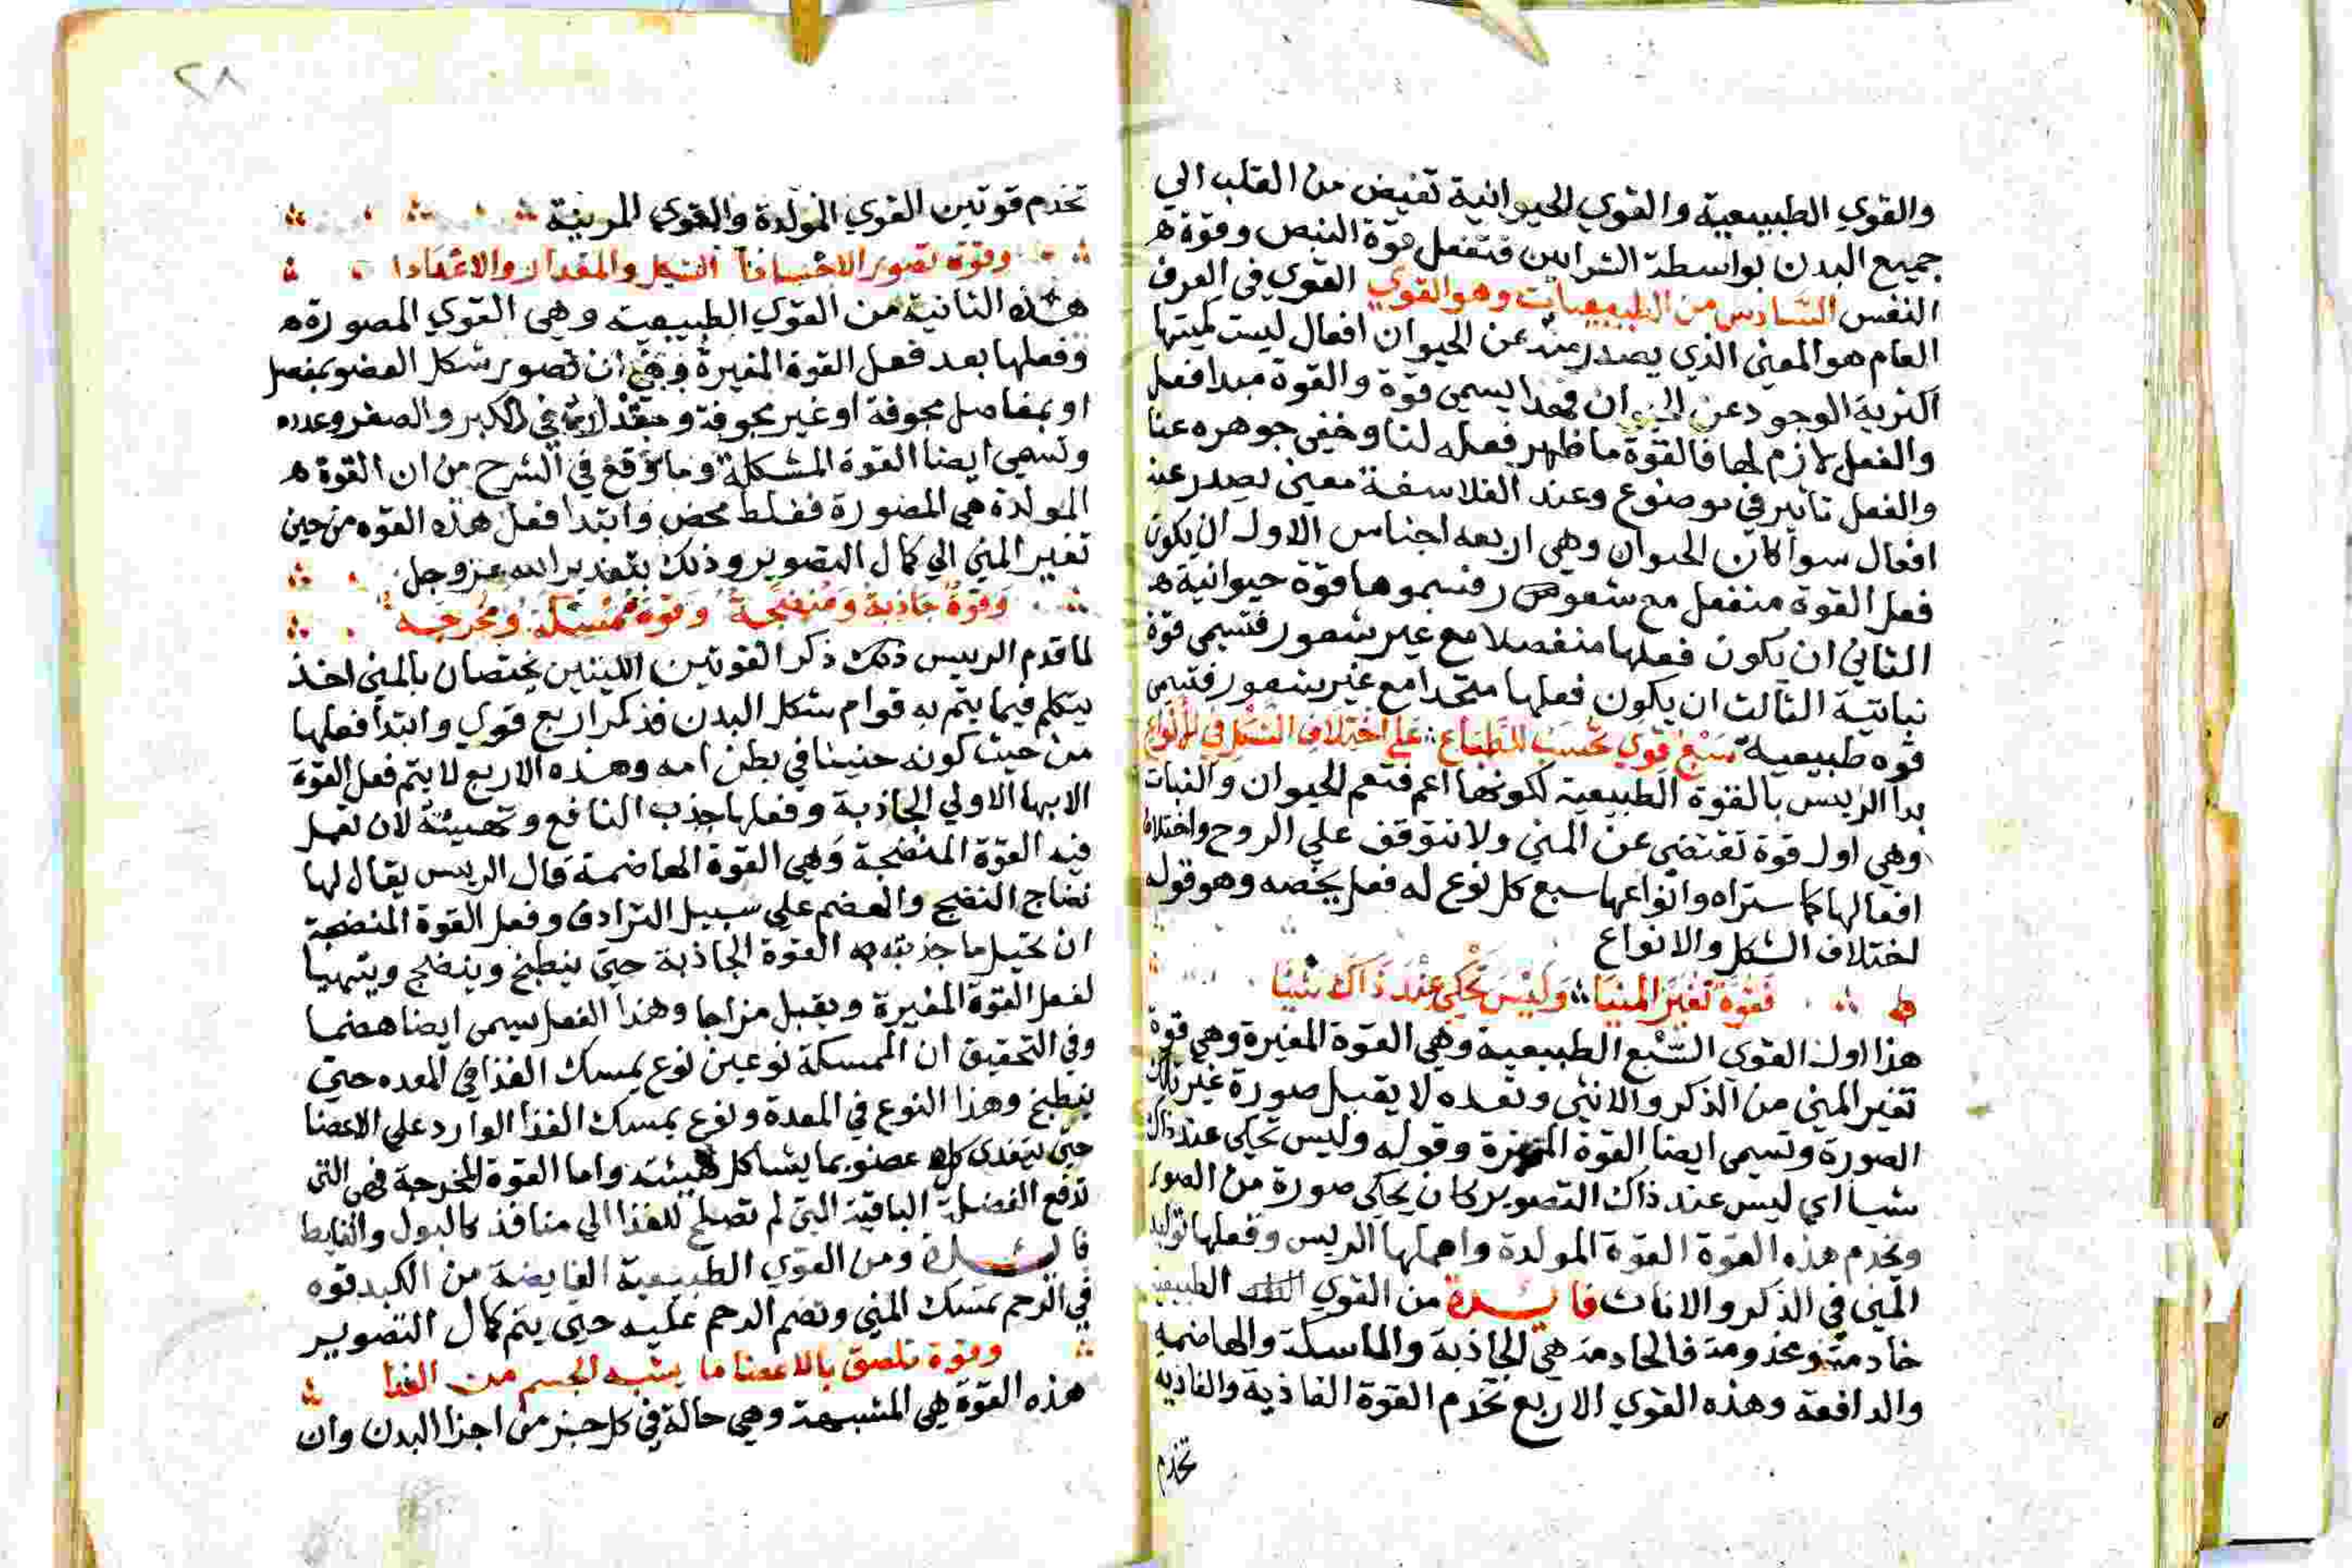 والقوي الطبيعية والقوي الحيوانية تفيض من القلب الي
جميع البدن بواسطة الشرايين فتفعل قوة النبض وقوة
النفس السادس من الطبيعيات وهو القوي القوي في العرف
العام هو المعني الذي يصدر منه عن الحيوان افعال ليست كميتها
اكثرية الوجود عن الحيوان فهذا يسمي قوة والقوة مبدا فعل
والفعل لازم لها فالقوة ما ظهر فعله لنا وخفي جوهره عنا
والفعل تاثير في موضوع وعند الفلاسفة معني يصدر عنه
افعال سوآ كان الحيوان وهي اربعه اجناس الاول ان يكون
فعل القوة منفعل مع شعور فنسموها قوة حيوانية
الثاني ان يكون فعلها منفصلا مع غير شعور فتسمي قوة
نباتية الثالث ان يكون فعلها متحدا مع غير شعور فتسمي
قوه طبيعية سبع قوي بحسب الطباع علي اختلاف الشكل في الانواع
بدآ الرييس بالقوة الطبيعية لكونها اعم فتعم الحيوان والنبات
وهي اول قوة تقتضي عن المني ولا تتوقف علي الروح واختلاف
افعالها كما ستراه وانواعها سبع كل نوع له فعل يخصه وهو قوله
اختلاف الشكل والانواع
فقوة تغير المنيا وليس تحكي عند ذاك شيا
هذا اول القوي السبع الطبيعية وهي القوة المغيرة وهي قوة
تغير المني من الذكر والانثي وتعده لا يقبل صورة غير تلك
الصورة وتسمي ايضا القوة وقوله وليس تحكي عند ذاك
شيا اي ليس عند ذاك التصوير كان يحاكي صورة من الصور
وتخدم هذه القوة القوة المولدة واهملها الريس وفعلها توليد
المني في الذكر والاناث فايدة من القوي الطبيعية
خادمة ومخدومة فالخادمة هي الجاذبة والماسكة والهاضمة
والدافعة وهذه القوي الاربع تخدم القوة الغاذية والغاذية
تخدم
٢٨
تخدم قوتين القوي المولدة والقوي المربية
وقوة تصور الاجناسا الشكل والمقدار والاعدادا
هذه الثانية من القوي الطبيعية وهي القوي المصورة
وفعلها بعد فعل القوة المغيرة وهي ان تصور شكل العضو بمفصل
او بمفاصل مجوفة او غير مجوفة في الكبر والصغر وعدده
وتسمي ايضا القوة المشكلة وما وقع في الشرح من ان القوة
المولدة هي المصورة فغلط محض وابتدا فعل هذه القوه من حين
تغير المني الي كمال التصوير وذلك بتقدير الله عز وجل
وقوة جاذبة ومنضجة وقوة ممسكة ومخرجه
لما قدم الرييس ذلك ذكر القوتين اللتين يختصان بالمني اخذ
يتكلم فيما يتم به قوام شكل البدن فذكر اربع قوي وابتدا فعلها
من حيث كونه جنينا في بطن امه وهذه الاربع لا يتم فعل القوة
الابها الاولي الجاذبة وفعلها جذب النافع وتهيئته لان تفعل
فيه القوة المنضجة وهي القوة الهاضمة قال الرييس يقال لها
نضاج النضج والهضم علي سبيل الترادف وفعل القوة المنضجة
ان تحيل ما جذبته القوة الجاذبة حتي ينطبخ وينضج ويتهيا
لفعل القوة المغيرة ويقبل مزاجا وهذا الفعل يسمي ايضا هضما
وفي التحقيق ان الممسكة نوعين نوع يمسك الغذا في المعده حتي
ينطبخ وهذا النوع في المعدة ونوع يمسك الغذا الوارد علي الاعضا
حتي يتغدي كل عضو بما يشاكل هيئته واما القوة المخرجة فهي التي
تدفع الفضلة الباقية التي لم تصلح للغذا الي منافذ كالبول والغايط
فايدة ومن القوي الطبيعية الفايضة من الكبد قوه
في الرحم تمسك المني وتضم الرحم عليه حتي يتم كمال التصوير
وقوة تلصق بالاعضا ما يشبه الجسم من الغذا
هذه القوة هي المشبهة وهي حالة في كل جزء من اجزا البدن وان